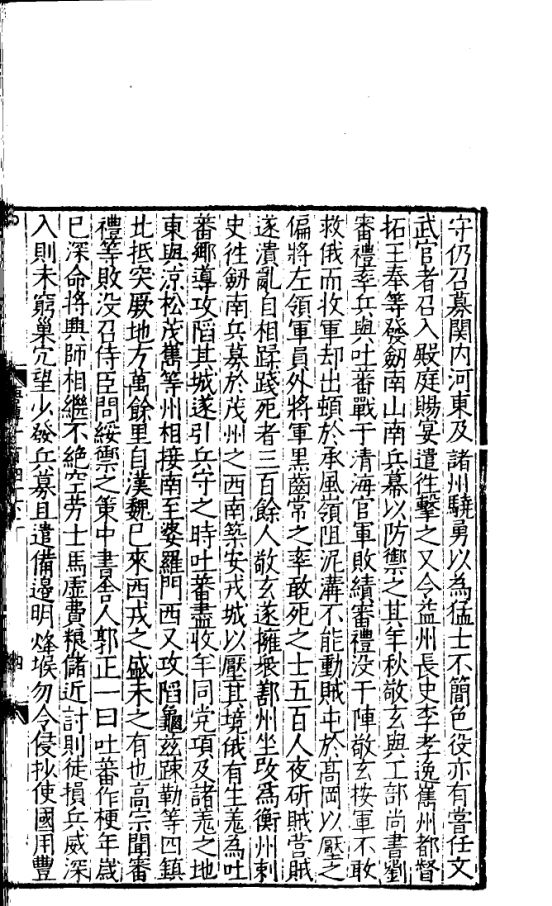 守仍召募関内河東及諸州驍勇以為猛士不簡色役亦有嘗任文
武官者召入殿庭賜宴遣徃擊之又令益州長史李孝逸嶲州都督
拓王奉等發劒南山南兵募以防禦之其年秋敬玄與工部尚書劉
審禮率兵與吐蕃戰于清海官軍敗績審禮没于陣敬玄按軍不敢
救俄而收軍却出頓於承風嶺阻泥溝不能動賊屯於髙岡以壓之
偏將左領軍員外將軍黒齒常之率敢死之士五百人夜斫賊营賊
遂潰亂自相蹂踐死者三百餘人敬玄遂擁衆鄯州坐改爲衡州刺
史徃劒南兵募於茂州之西南築安戎城以壓其境俄有生羌為吐
蕃郷導攻陷其城遂引兵守之時吐蕃盡收年同党項及諸羌之地
東與凉松茂嶲等州相接南至婆羅門西又攻陷龜兹踈勒等四鎮
北抵突厥地方萬餘里自漢魏已來西戎之盛未之有也高宗聞審
禮等敗没召侍臣問綏禦之策中書舍人郭正一曰吐蕃作梗年歲
已深命將興師相繼不絶空劳士馬虚費粮儲近討則徒損兵威深
入則未窮巢穴望少發兵募且遣備邊明烽堠勿令侵抄使國用豐